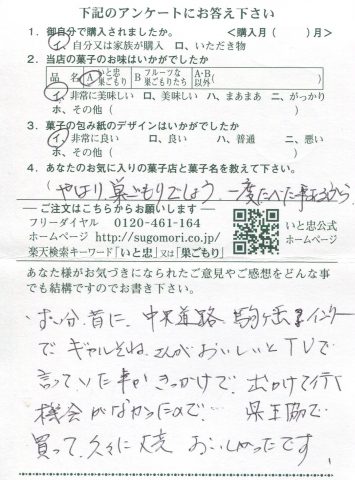 下記のアンケートにお答え下さい
1. 御自分で購入されましたか。 <購入月( )月>
イ、自分又は家族が購入 ロ、いただき物
2. 当店の菓子のお味はいかがでしたか
品名 A いと忠巣ごもり B フルーツな巣ごもりたち A・B以外( )
イ、非常に美味しい ロ、美味しい ハ、まあまあ ニ、がっかり
ホ、その他( )
3. 菓子の包み紙のデザインはいかがでしたか
イ、非常に良い ロ、良い ハ、普通 ニ、悪い
ホ、その他( )
4. あなたのお気に入りの菓子店と菓子名を教えて下さい。
(やはり巣ごもりでしょう 一度たべた事あるから
ご注文はこちらからお願いします
フリーダイヤル 0120-461-164
ホームページ http://sugomori.co.jp/
楽天検索キーワード「いと忠」又は「巣ごもり」
いと忠公式
ホームページ
あなた様がお気づきになられたご意見やご感想をどんな事
でも結構ですのでお書き下さい。
昔に、中央道路 駒ヶ岳インター
で ギャルそねさんがおいしいとTVで
言っていた事がきっかけで、出かけて行く
機会がなかったので… 県王協で
買って、久々に おいしかったです